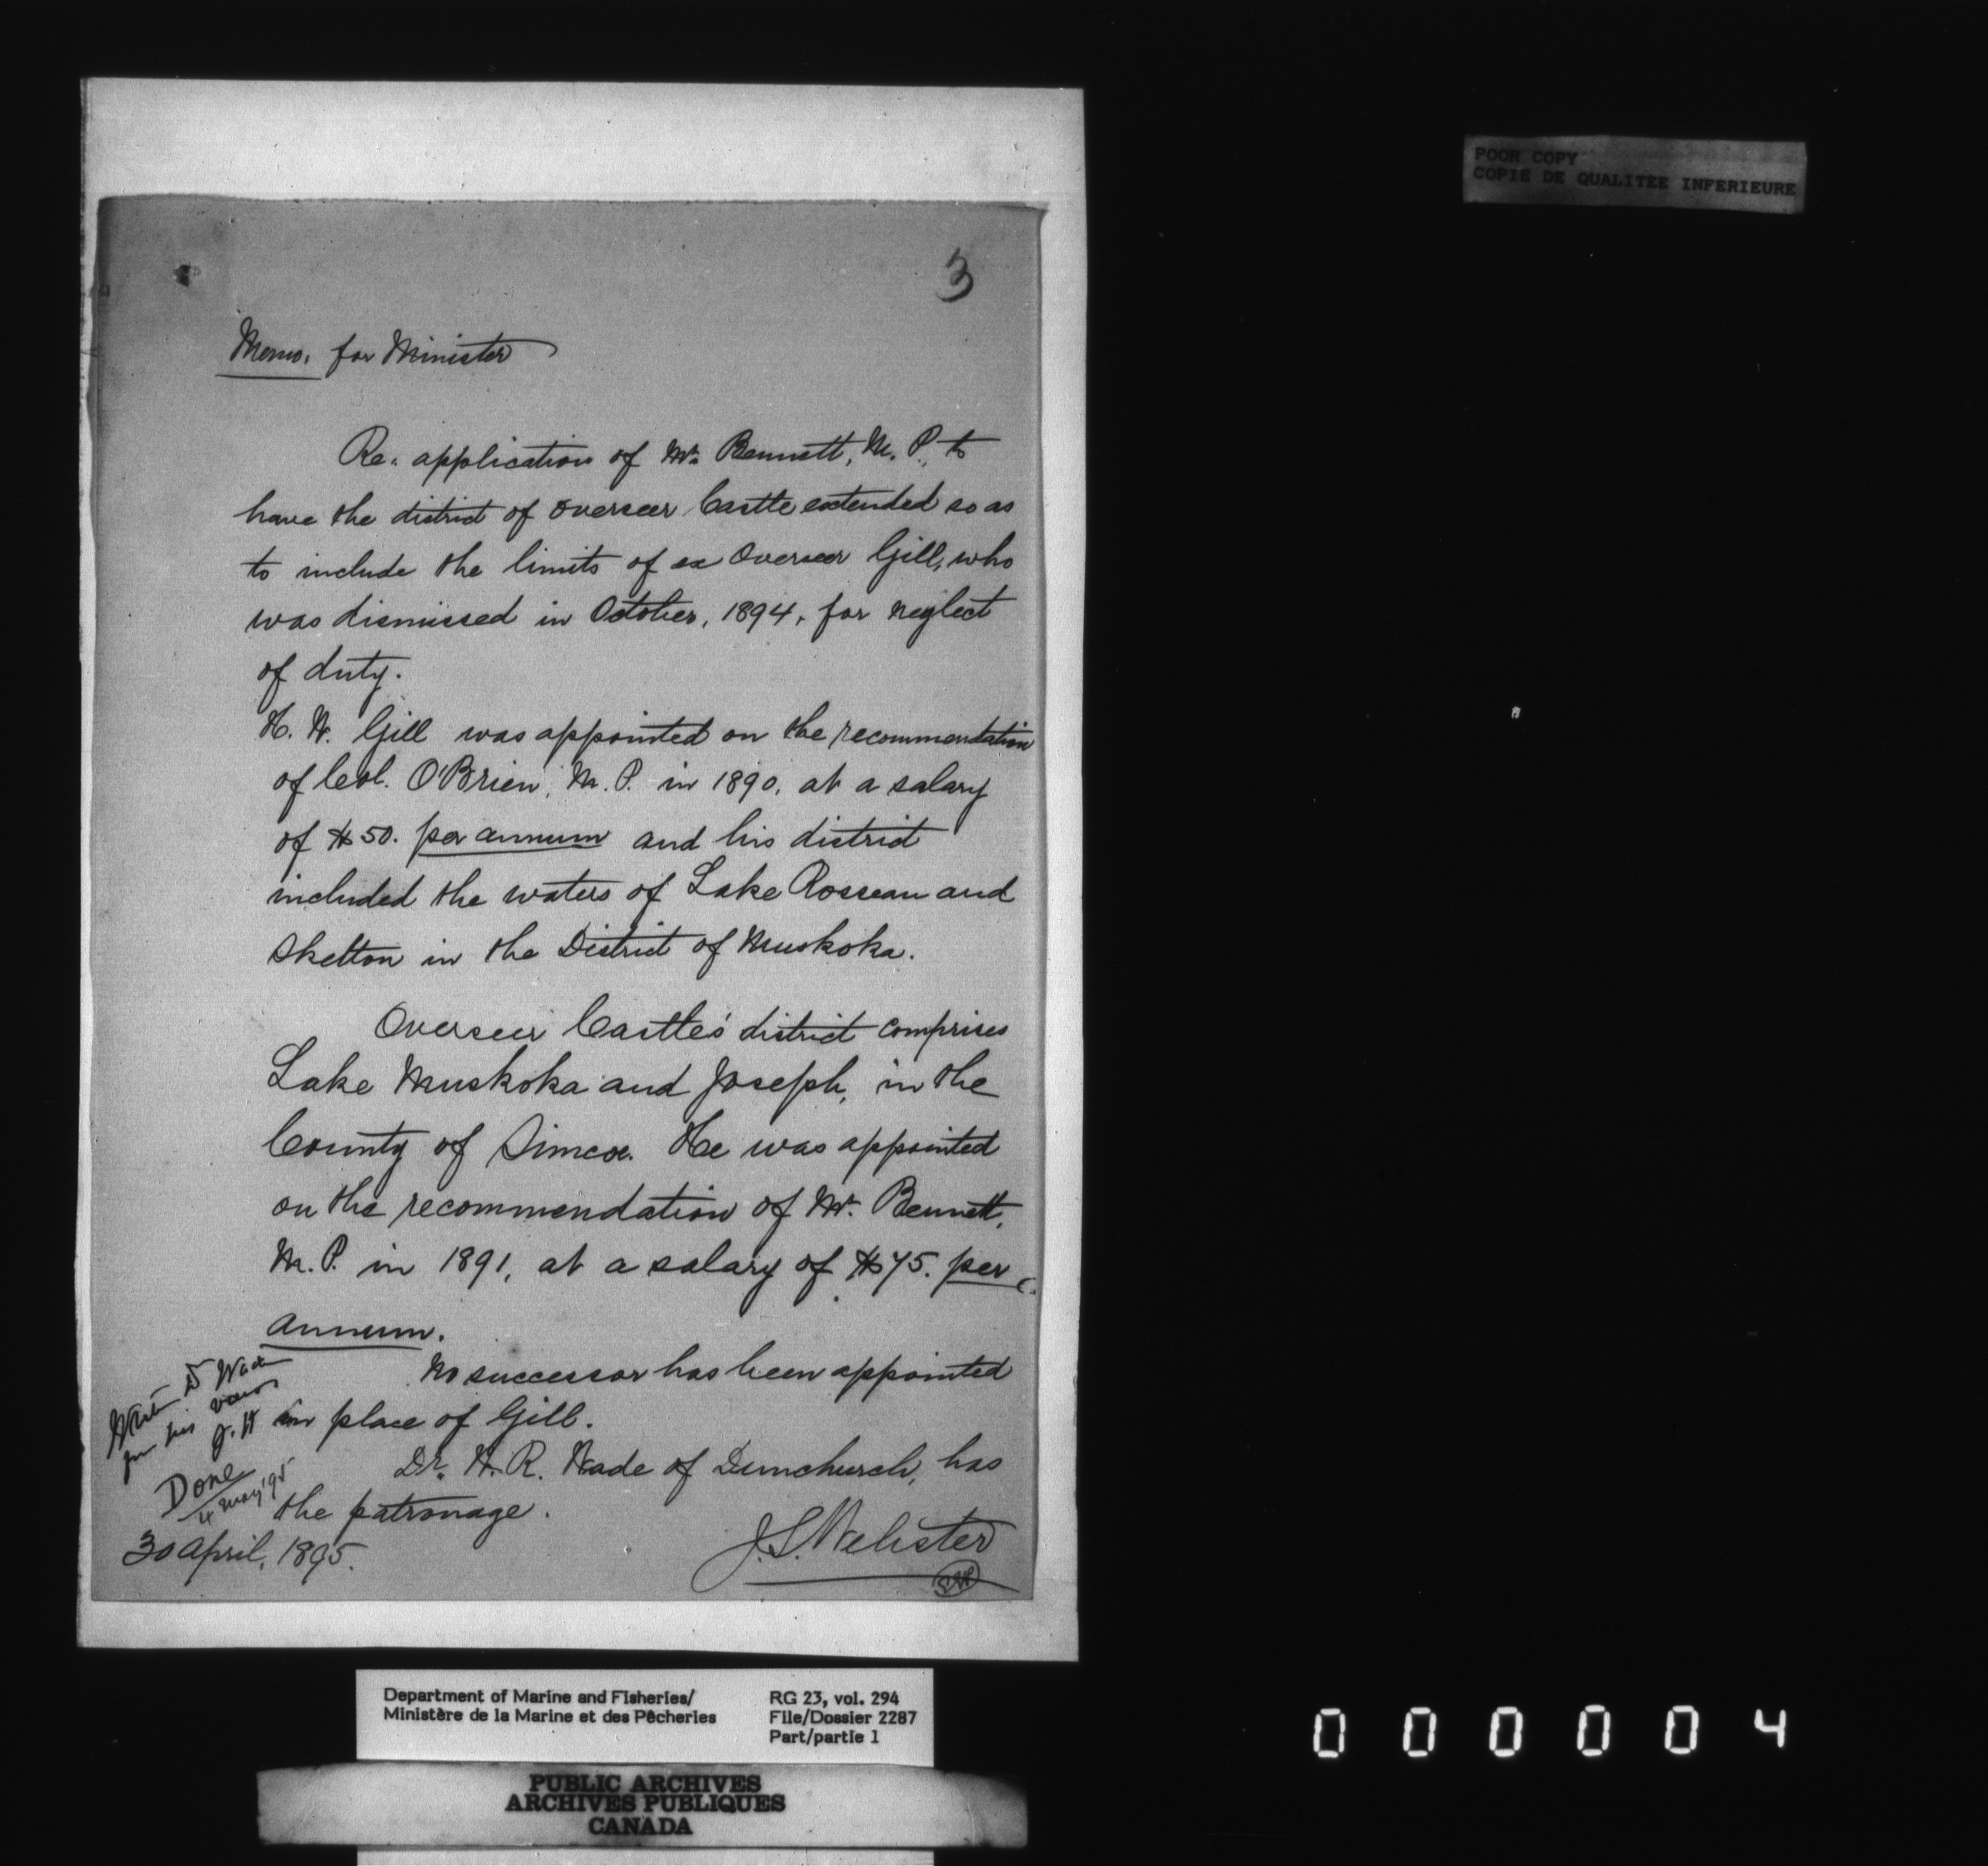 3
Memo. for Minister
Re. application of Mr. Bennett, M. P., to
have the district of Overseer Castle extended so as
to include the limits of ex Overseer Gill, who
was dismissed in October, 1894, for neglect
of duty.
H. W. Gill was appointed on the recommendation
of Col. O'Brien, M. P. in 1890, at a salary
of $50. per annum and his district
included the waters of Lake Rosseau and
Skelton in the District of Muskoka.
Overseer Castle's district comprises
Lake Muskoka and Joseph, in the
County of Simcoe. He was appointed
on the recommendation of Mr. Bennett,
M. P. in 1891, at a salary of $75. per
annum.
No successor has been appointed
in place of Gill.
Dr. W. R. Wade of Dunchurch, has
the patronage.
Write Dr Wade
for his views
J. H
Done
4 May '95
30 April, 1895.
J. S. Webster
POOR COPY
COPIE DE QUALITEE INFERIEURE
Department of Marine and Fisheries/
Ministère de la Marine et des Pêcheries
RG 23, vol. 294
File/Dossier 2287
Part/partie 1
PUBLIC ARCHIVES
ARCHIVES PUBLIQUES
CANADA
000004